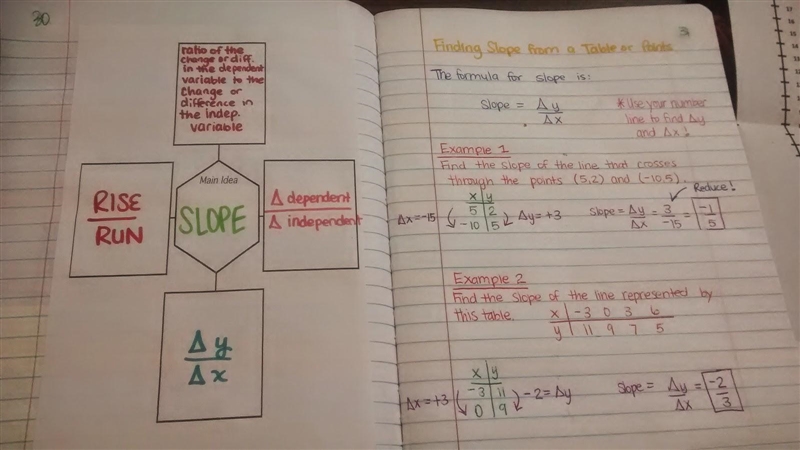 30
ratio of the
change or diff.
in the dependent
variable to the
change or
difference in
the indep.
variable
Main Idea
RISE
RUN
SLOPE
Δ dependent
Δ independent
Δy
Δx
Finding Slope from a Table or Points
The formula for slope is:
Slope = Δy
Δx
*Use your number
line to find Δy
and Δx!
Example 1
Find the slope of the line that crosses
through the points (5,2) and (-10,5).
Reduce!
x y
5 2
-10 5
Δx=-15
Δy=+3
Slope = Δy = 3 = -1
Δx -15 5
Example 2
Find the slope of the line represented by
this table.
x -3 0 3 6
y 11 9 7 5
x y
-3 11
0 9
Δx=+3
-2=Δy
Slope = Δy = -2
Δx 3